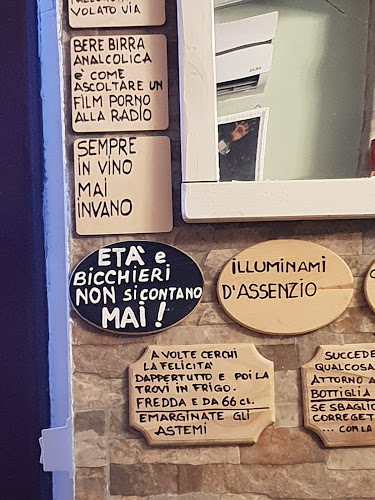 VOLATO VIA
BERE BIRRA
ANALCOLICA
è COME
ASCOLTARE UN
FILM PORNO
ALLA RADIO
SEMPRE
IN VINO
MAI
INVANO
ETÀ e
BICCHIERI
NON SI CONTANO
MAI!
ILLUMINAMI
D'ASSENZIO
A VOLTE CERCHI
LA FELICITÀ
DAPPERTUTTO E POI LA
TROVI IN FRIGO.
FREDDA E DA 66 CL.
EMARGINATE GLI
ASTEMI
SUCCEDE
QUALCOSA
ATTORNO A
BOTTIGLIA
SE SBAGLIO
CORREGET
... CON LA